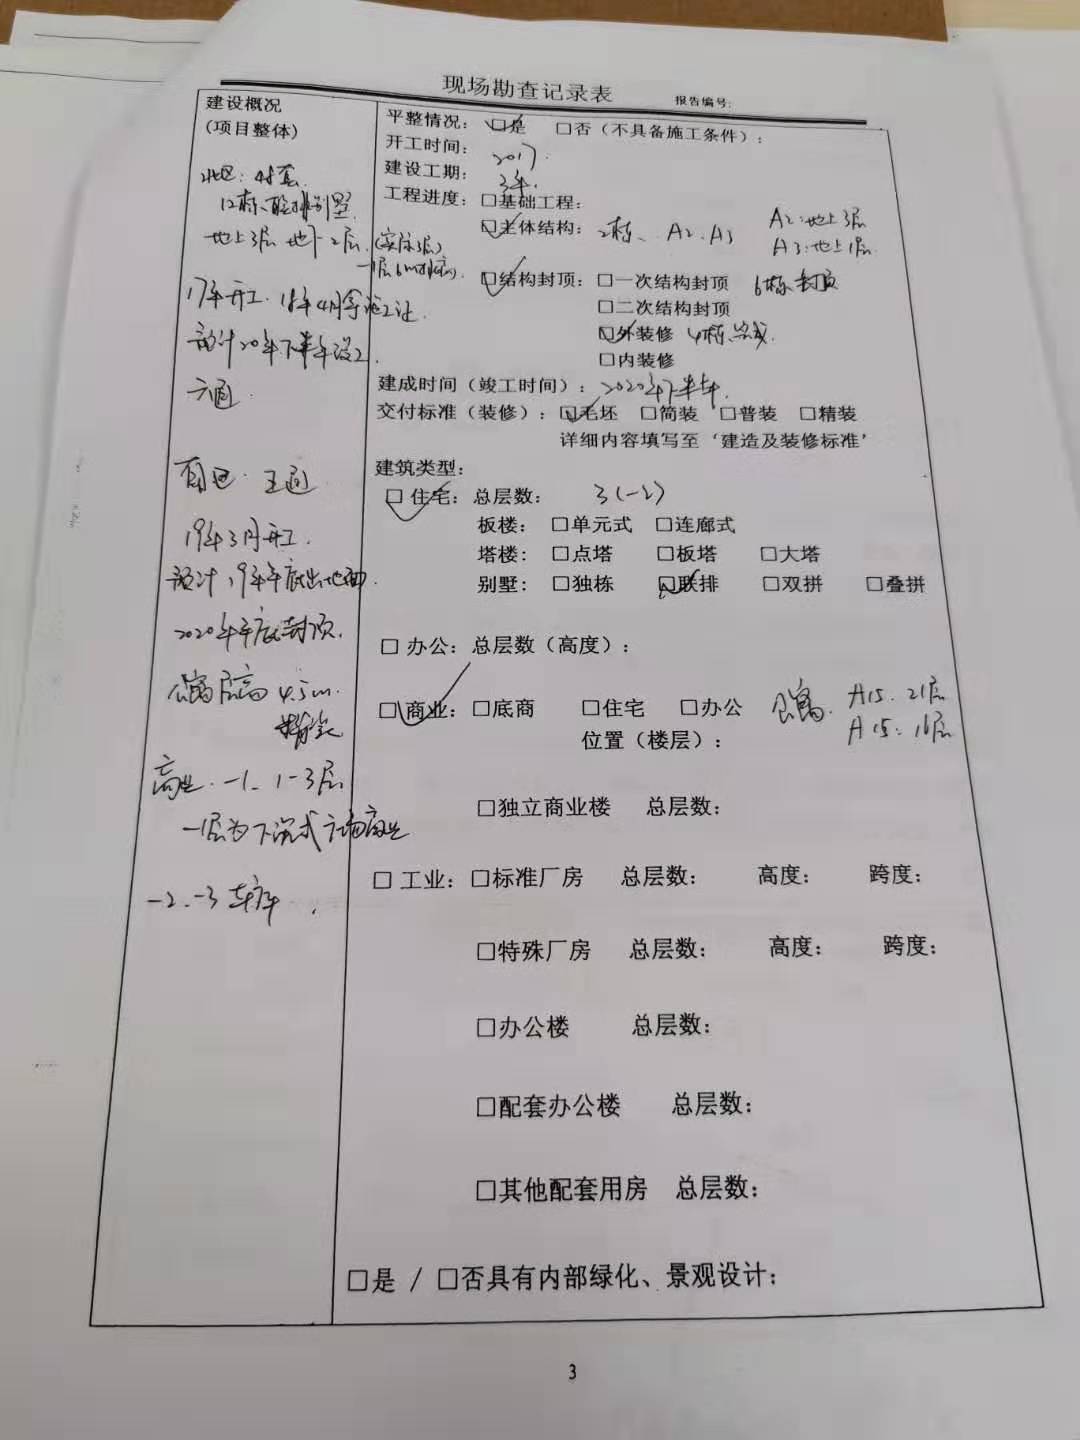 现场勘查记录表
报告编号:
建设概况
(项目整体)
北区: 48套
12栋联排别墅
地上3层 地下2层 (实际3层)
17年开工. 18年4月拿施工证
预计20年下半年竣工
六通.
南区. 五通
19年3月开工.
预计19年年底出地面.
2020年年底封顶.
公寓层高 4.5m.
精装
商业. -1、1-3层
-1层为下沉式广场商业
-2、-3车库.
平整情况: ☑是 □否(不具备施工条件):
开工时间: 2017.
建设工期: 3年.
工程进度: □基础工程:
☑主体结构: 2栋、A2、A3 A2:地上3层
A3:地上1层.
☑结构封顶: □一次结构封顶 6栋封顶
□二次结构封顶
☑外装修 4栋完成.
□内装修
建成时间(竣工时间): 2020年下半年.
交付标准(装修): ☑毛坯 □简装 □普装 □精装
详细内容填写至‘建造及装修标准’
建筑类型:
☑住宅: 总层数: 3(-2)
板楼: □单元式 □连廊式
塔楼: □点塔 □板塔 □大塔
别墅: □独栋 ☑联排 □双拼 □叠拼
□办公: 总层数(高度):
☑商业: □底商 □住宅 □办公 公寓. A15. 21层
位置(楼层): A15: 16层
□独立商业楼 总层数:
□工业: □标准厂房 总层数: 高度: 跨度:
□特殊厂房 总层数: 高度: 跨度:
□办公楼 总层数:
□配套办公楼 总层数:
□其他配套用房 总层数:
□是 / □否具有内部绿化、景观设计:
3